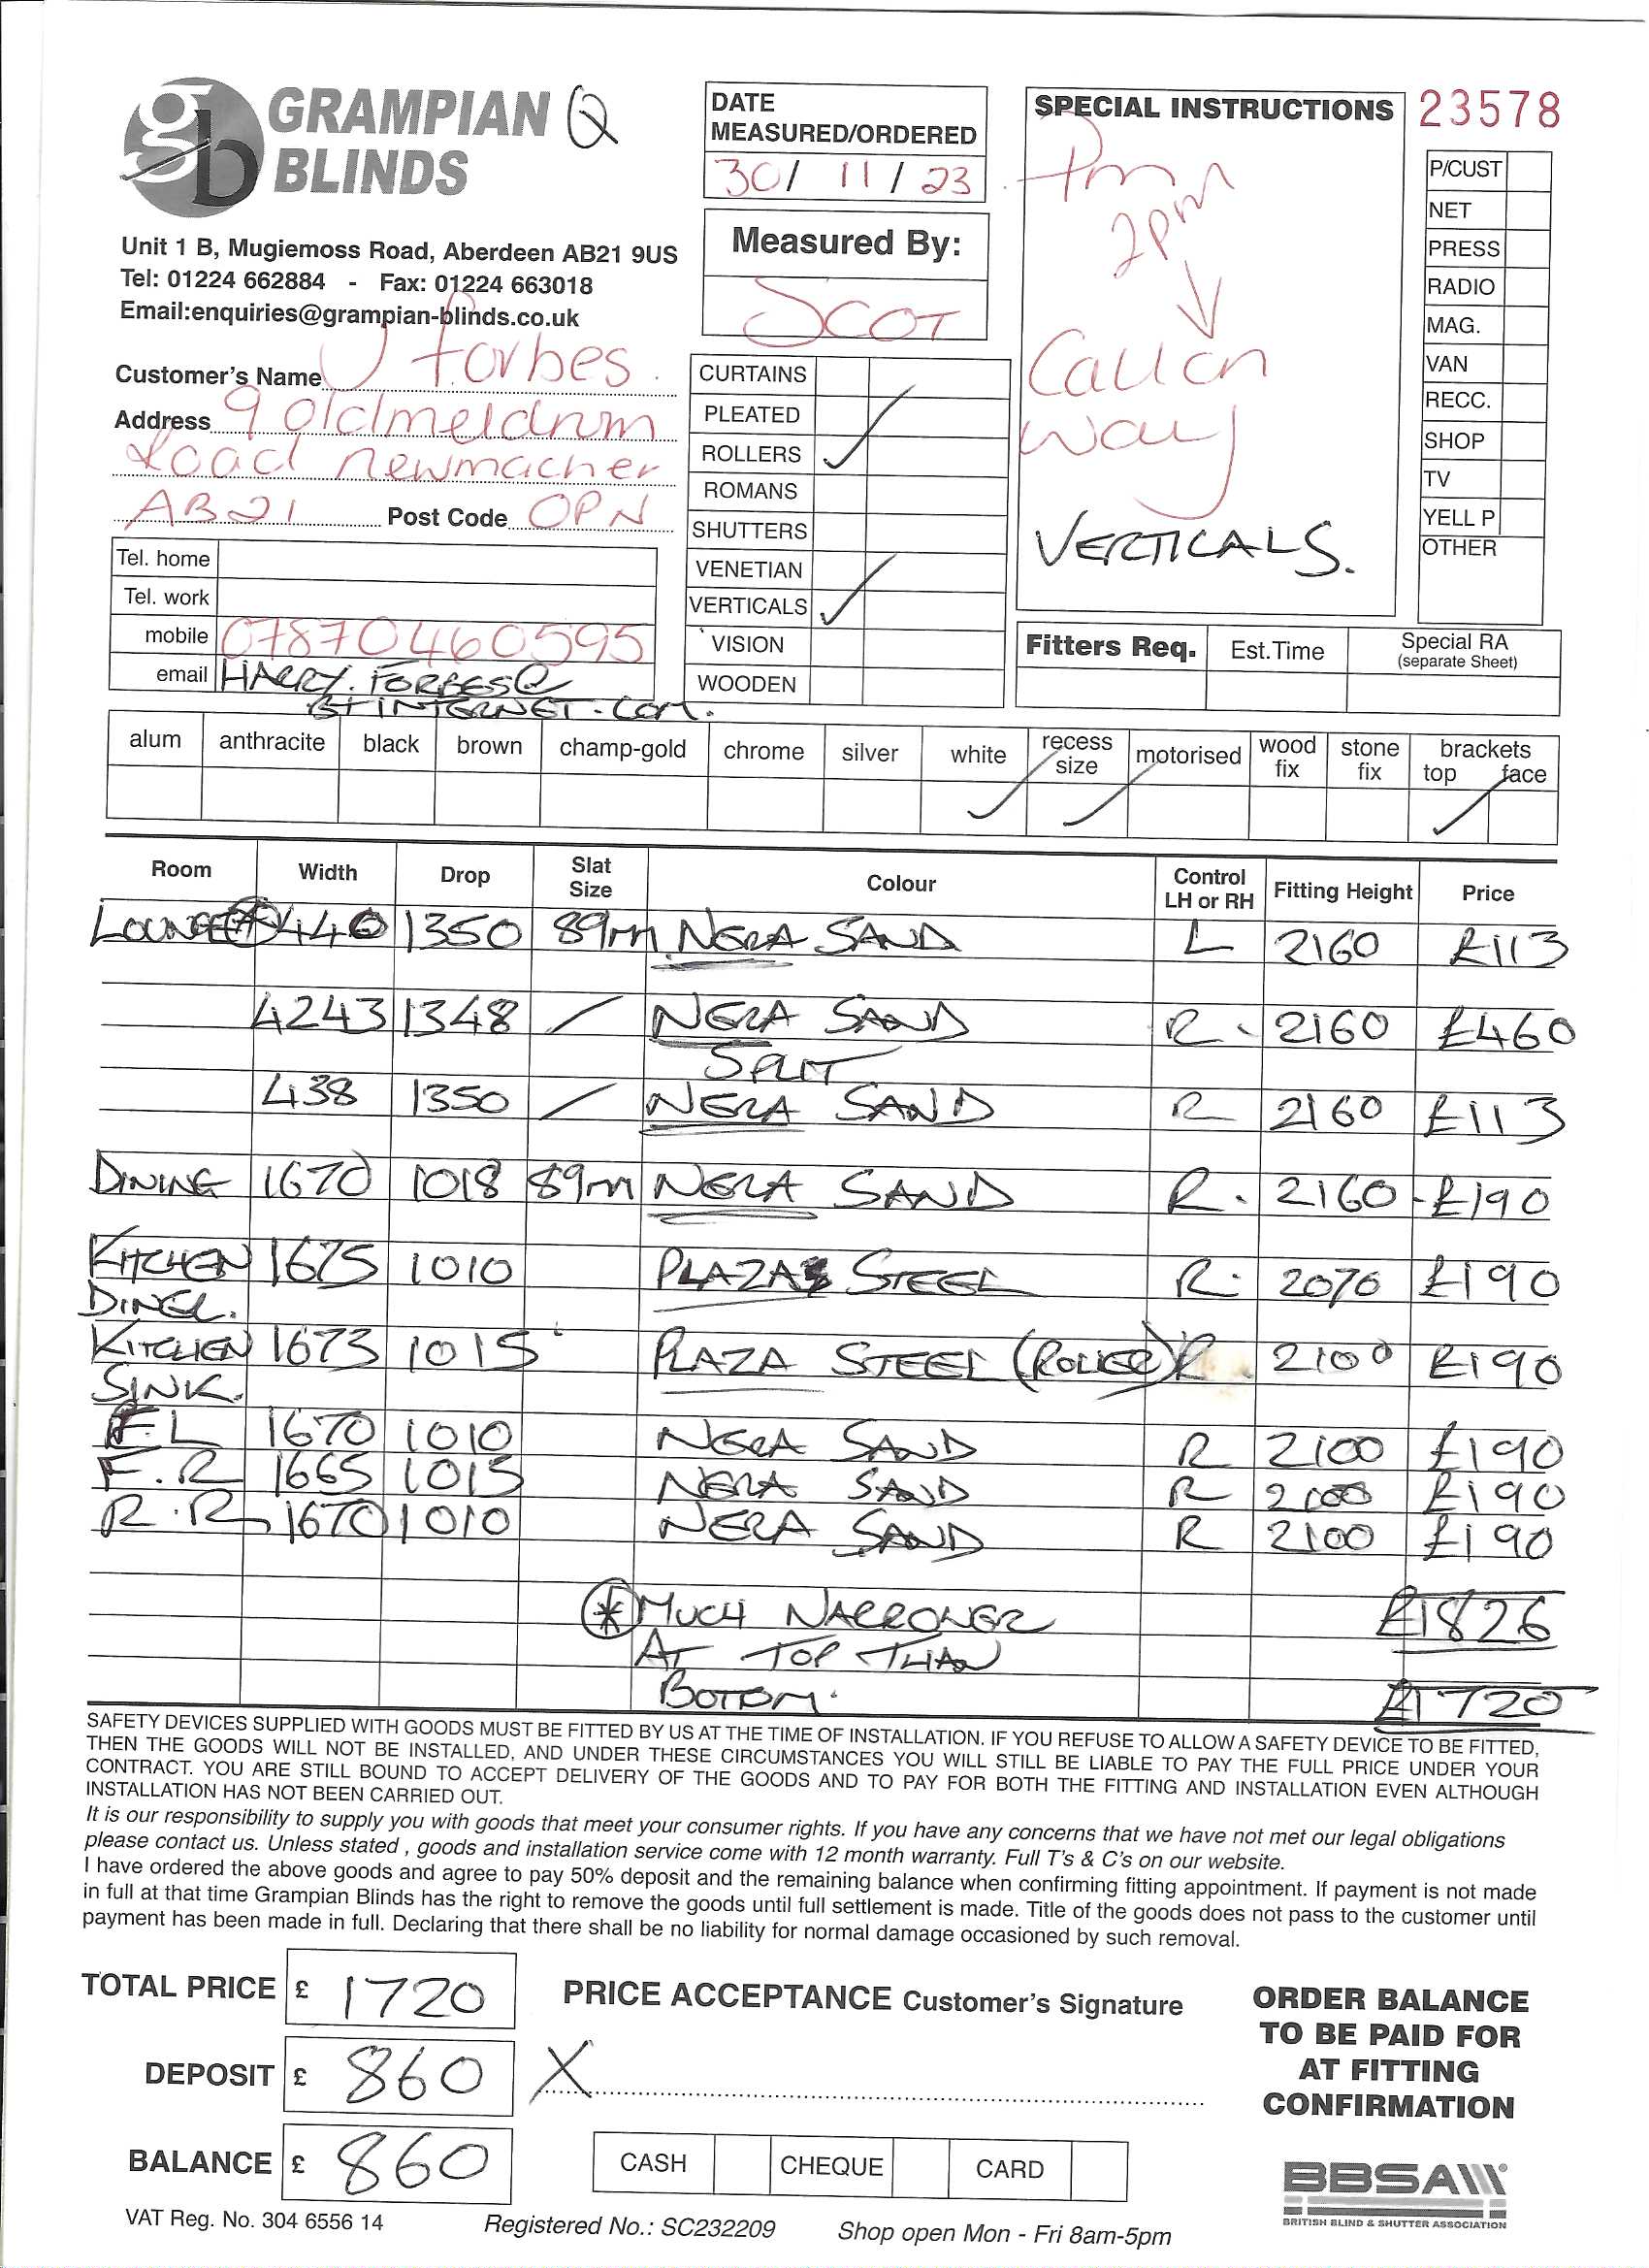 gb GRAMPIAN BLINDS Q
Unit 1 B, Mugiemoss Road, Aberdeen AB21 9US
Tel: 01224 662884 - Fax: 01224 663018
Email:enquiries@grampian-blinds.co.uk
Customer's Name J Forbes.
Address 9 oldmeldrum
Road newmacher
AB21 Post Code OPN
Tel. home
Tel. work
mobile 07870460595
email HARRY.FORBES@
BTINTERNET.COM.
DATE
MEASURED/ORDERED
30/ 11 / 23
Measured By:
SCOT
CURTAINS
PLEATED
ROLLERS ✓
ROMANS
SHUTTERS
VENETIAN
VERTICALS ✓
VISION
WOODEN
SPECIAL INSTRUCTIONS
Pm
2pm
Call on
way
VERTICALS.
23578
P/CUST
NET
PRESS
RADIO
MAG.
VAN
RECC.
SHOP
TV
YELL P
OTHER
Fitters Req. Est.Time Special RA
(separate Sheet)
alum anthracite black brown champ-gold chrome silver white recess size motorised wood fix stone fix brackets top face
✓ ✓ ✓
Room Width Drop Slat Size Colour Control LH or RH Fitting Height Price
LOUNGE * 440 1350 89m NERA SAND L 2160 £113
4243 1348 / NERA SAND R 2160 £460
SPLIT
438 1350 / NERA SAND R 2160 £113
DINING 1670 1018 89m NERA SAND R. 2160 - £190
KITCHEN 1675 1010 PLAZA STEEL R. 2070 £190
DINER.
KITCHEN 1673 1015 PLAZA STEEL (ROLLER) R 2100 £190
SINK.
F.L 1670 1010 NERA SAND R 2100 £190
F.R 1665 1015 NERA SAND R 2100 £190
R.R 1670 1010 NERA SAND R 2100 £190
* MUCH NARROWER £1826
AT TOP THAN
BOTTOM. £1720
SAFETY DEVICES SUPPLIED WITH GOODS MUST BE FITTED BY US AT THE TIME OF INSTALLATION. IF YOU REFUSE TO ALLOW A SAFETY DEVICE TO BE FITTED,
THEN THE GOODS WILL NOT BE INSTALLED, AND UNDER THESE CIRCUMSTANCES YOU WILL STILL BE LIABLE TO PAY THE FULL PRICE UNDER YOUR
CONTRACT. YOU ARE STILL BOUND TO ACCEPT DELIVERY OF THE GOODS AND TO PAY FOR BOTH THE FITTING AND INSTALLATION EVEN ALTHOUGH
INSTALLATION HAS NOT BEEN CARRIED OUT.
It is our responsibility to supply you with goods that meet your consumer rights. If you have any concerns that we have not met our legal obligations
please contact us. Unless stated , goods and installation service come with 12 month warranty. Full T's & C's on our website.
I have ordered the above goods and agree to pay 50% deposit and the remaining balance when confirming fitting appointment. If payment is not made
in full at that time Grampian Blinds has the right to remove the goods until full settlement is made. Title of the goods does not pass to the customer until
payment has been made in full. Declaring that there shall be no liability for normal damage occasioned by such removal.
TOTAL PRICE £ 1720
DEPOSIT £ 860
BALANCE £ 860
PRICE ACCEPTANCE Customer's Signature
X
CASH CHEQUE CARD
ORDER BALANCE
TO BE PAID FOR
AT FITTING
CONFIRMATION
BBSA
BRITISH BLIND & SHUTTER ASSOCIATION
VAT Reg. No. 304 6556 14 Registered No.: SC232209 Shop open Mon - Fri 8am-5pm